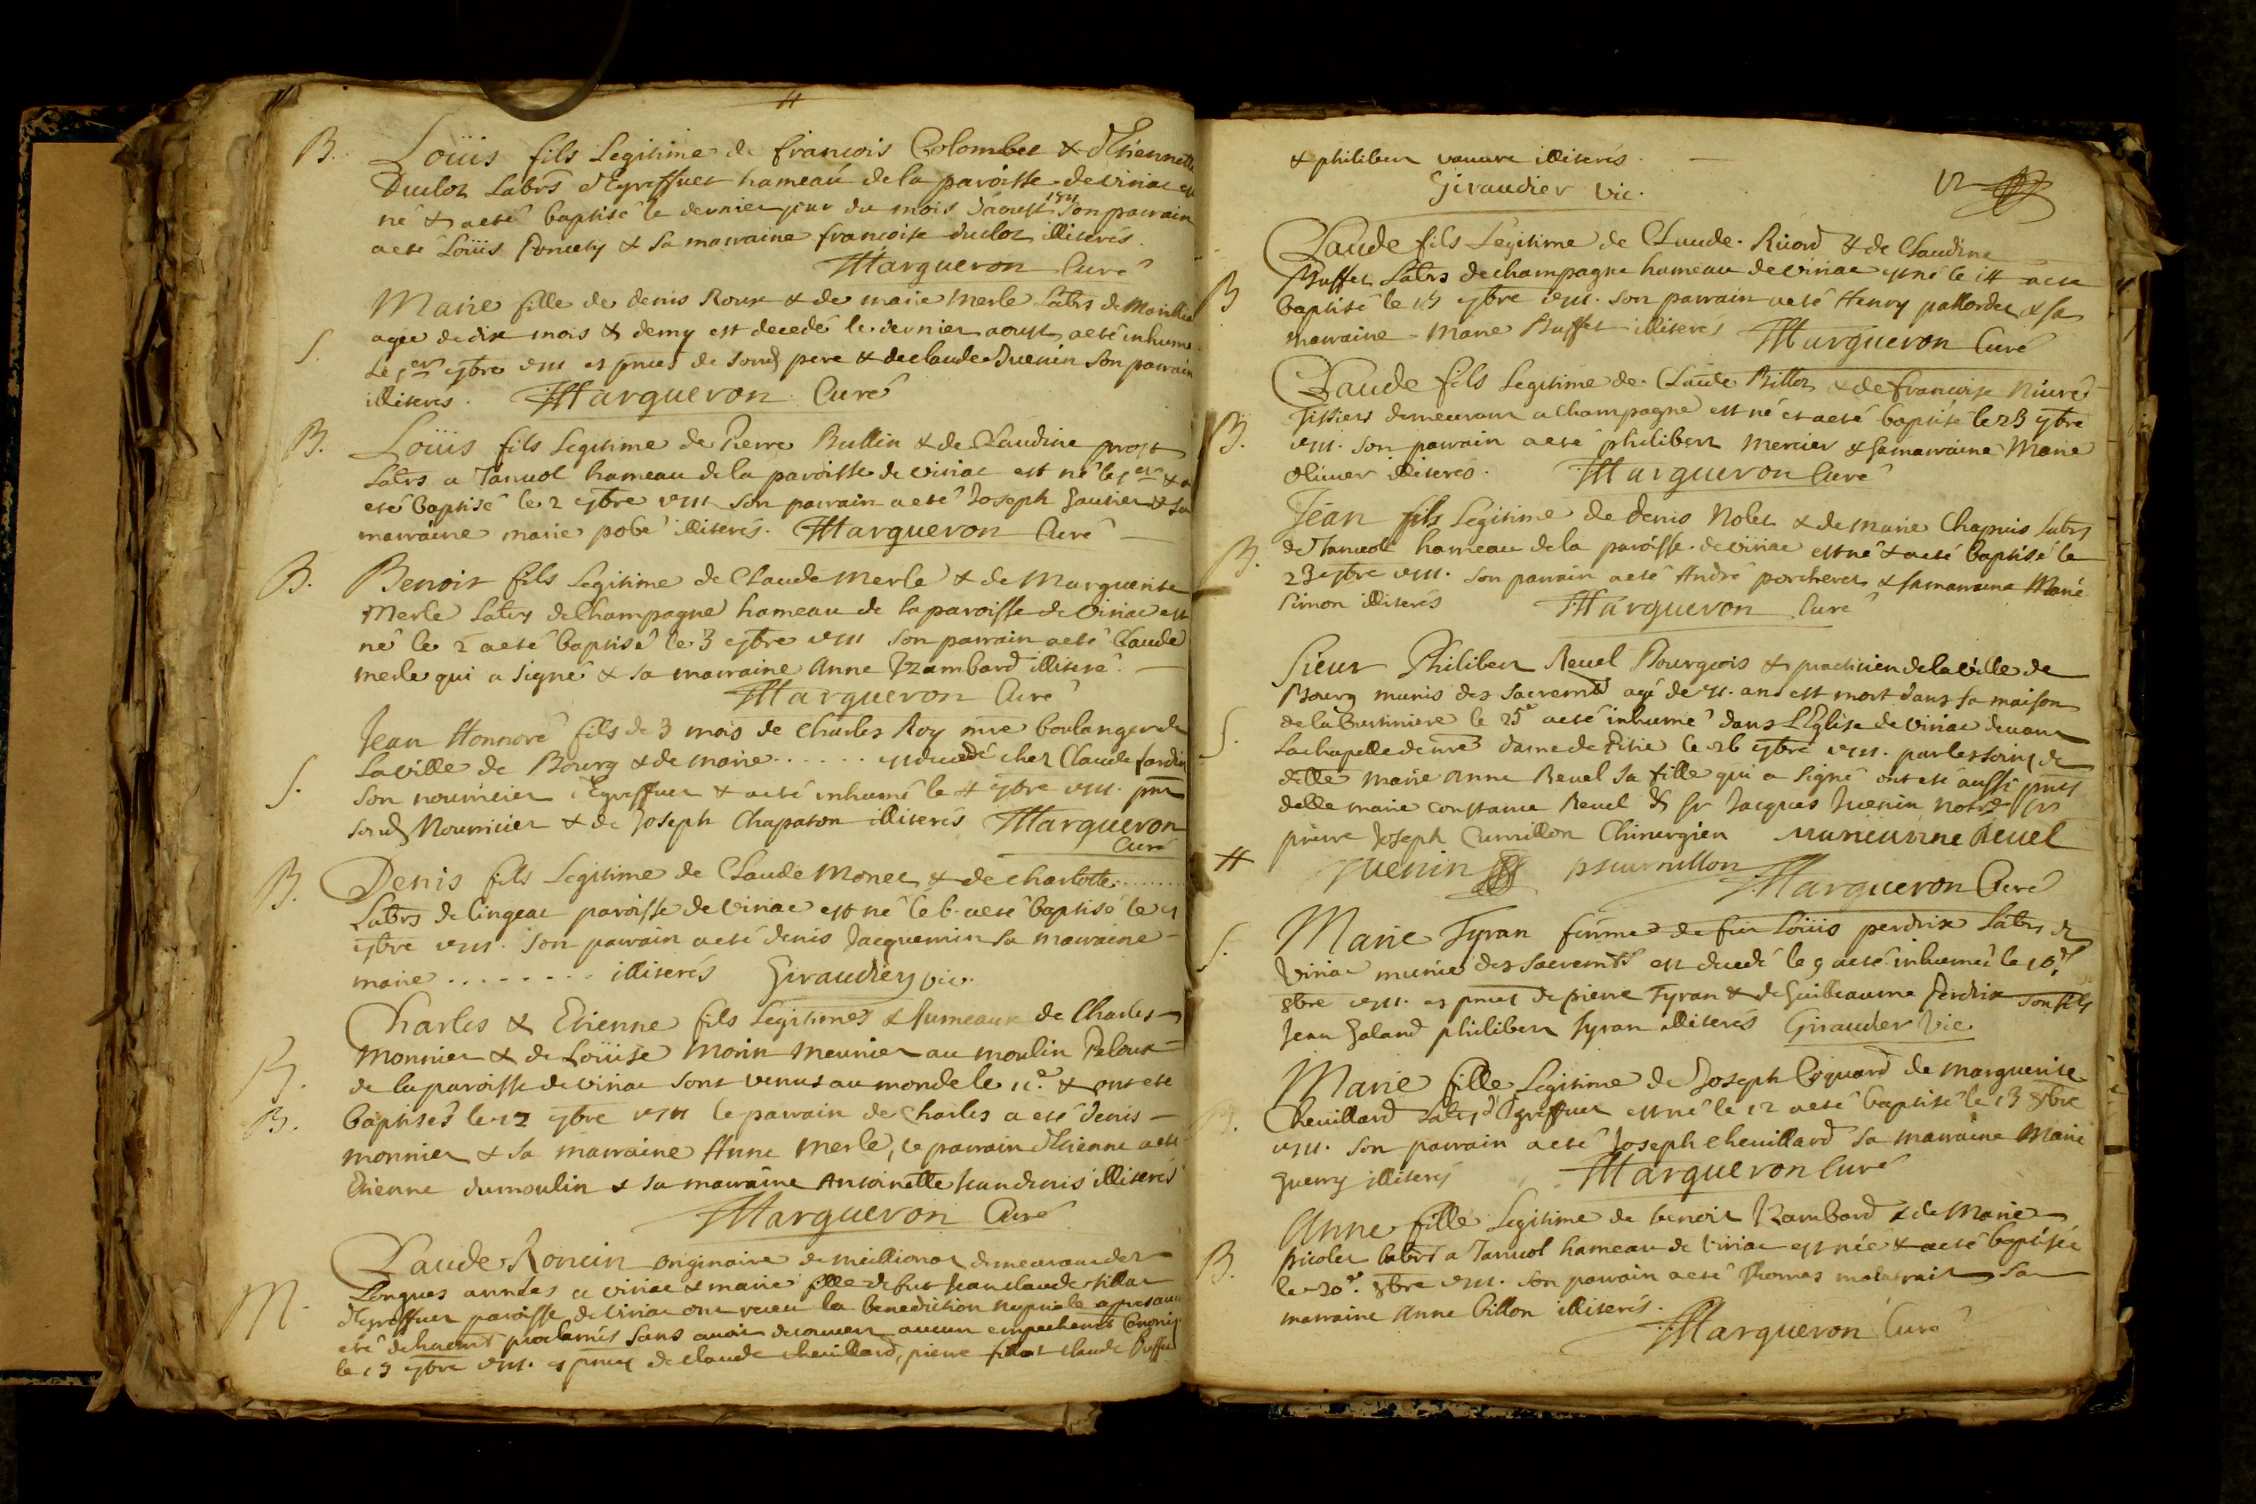 B. Loüis fils Legitime de francois Colombet & d'Etiennette
Duclos Labrs d'Egreffuet hameau de la paroisse de viriac est
né & a eté baptisé le dernier jour du mois d'aoust 1711 son parrain
a eté Loüis Poncety & sa marraine francoise duclos illiterés.
Margueron Curé
Marie fille de denis Roux & de marie merle Labrs de
S. agée de dix mois & demy est decedé le dernier aoust, a eté inhumé
le 1er 7bre 1711 es pntes de sond pere & de claude Juenin son parrain
illiterés. Margueron Curé
B. Loüis fils Legitime de Pierre Bullin & de Claudine prost
Labrs a Tanvol hameau de la paroisse de viriac est né le 1er & a
eté baptisé le 2 7bre 1711 son parrain a eté Joseph Gautier & sa
marraine marie pobé illiterés. Margueron Curé
B. Benoit fils Legitime de Claude merle & de Marguerite
Merle Labrs de Champagne hameau de la paroisse de viriac est
né le 2 a eté baptisé le 3 7bre 1711 son parrain a eté Claude
merle qui a signé & sa marraine Anne Izambard illiteré.
Margueron Curé
Jean Honnoré fils de 3 mois de Charles Roy mre boulanger de
S. la ville de Bourg & de marie ...... est decedé chez Claude Jardin
son nourricier d'Egreffuet & a eté inhumé le 4 7bre 1711. pnt
sond Nourricier & de Joseph Chapaton illiterés Margueron
Curé
B. Denis fils Legitime de Claude Monet & de charlotte ........
Labrs de Lingeat paroisse de viriac est né le 6. a eté baptisé le 7
7bre 1711. son parrain a eté denis Jacquemin sa marraine
marie ........ illiterés Giraudier vic.
Charles & Etienne fils Legitimes & Jumeaux de Charles
B. Monnier & de Loüise Morin meunier au moulin Peloux
de la paroisse de viriac sont venus au monde le 11e & ont eté
B. baptisés le 12 7bre 1711 le parrain de Charles a eté denis
monnier & sa marraine Anne merle, le parrain d'Etienne a eté
Etienne dumoulin & sa marraine Antoinette Jeandenis illiterés
Margueron Curé
Claude Roncin originaire de meillionas demeurant des
Longues années a viriac & marie fille de fut Jean claude fillat
M. d'Egreffuet paroisse de viriac ont receu la benediction nuptiale apres avoir
eté dehuemt proclamés sans avoir decouvert aucun empechemt Canoniq
le 13 7bre 1711. es pntes de claude cheuillard, pierre fillat claude Buffet
& philibert vauvre illiterés.
Giraudier vic.
12
Claude fils Legitime de Claude Ricord & de Claudine
B Buffet Labrs de champagne hameau de viriac est né le 14 a eté
baptisé le 15 7bre 1711. son parrain a eté Henry pallordet & sa
marraine Marie Buffet illiterés Margueron Curé
Claude fils Legitime de Claude Billet & de francoise Niuré
tissiers demeurant a champagne est né et a eté baptisé le 23 7bre
B. 1711. son parrain a eté philibert Mercier & sa marraine Marie
Oliuier illiterés. Margueron Curé
Jean fils Legitime de denis Nolet & de marie Chapuis Labrs
B. de Tanvol hameau de la paroisse de viriac est né & a eté baptisé le
23 7bre 1711. son parrain a eté André porcheret & sa marraine Marie
simon illiterés Margueron Curé
Sieur Philibert Reuel Bourgeois & practicien de la ville de
Bourg munis des sacremts agé de 71. ans est mort dans sa maison
S. de la le 25e a eté inhumé dans L'Eglise de viriac deuant
la chapelle de nre dame de Pitié le 26 7bre 1711. par les soins de
delle marie anne Reuel sa fille qui a signé ont eté aussi pnts
delle marie constance Reuel & sr Jacques Juenin notre & sr
pierre Joseph Curnillon Chirurgien Marieanne Reuel
Juenin pscurnillon
Margueron Curé
S. Marie Tyran femme de fut Loüis perdrix Labrs de
viriac munie des sacremts est decedé le 9 a eté inhumée le 10e
8bre 1711. es pntes de pierre Tyran & de Guillaume Perdrix son fils
Jean Galand philibert Tyran illiterés Giraudier vic
Marie fille Legitime de Joseph Coquard de marguerite
B. Cheuillard Labrs d'Egreffuet est né le 12 a eté baptisé le 13 8bre
1711. son parrain a eté Joseph cheuillard sa marraine Marie
Guerry illiterés Margueron Curé
Anne fille Legitime de benoit Izambard & de Marie
B. picolet labrs a Tanvol hameau de viriac est née & a eté baptisée
le 20e 8bre 1711. son parrain a eté Thomas sa
marraine Anne Billon illiterés.
Margueron Curé